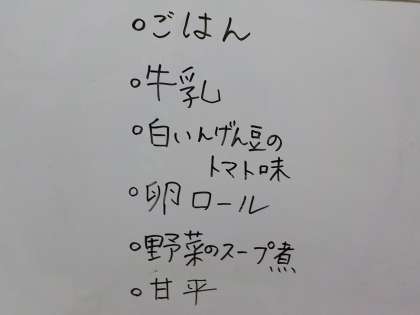 ○ごはん
○牛乳
○白いんげん豆の
トマト味
○卵ロール
○野菜のスープ煮
○甘平